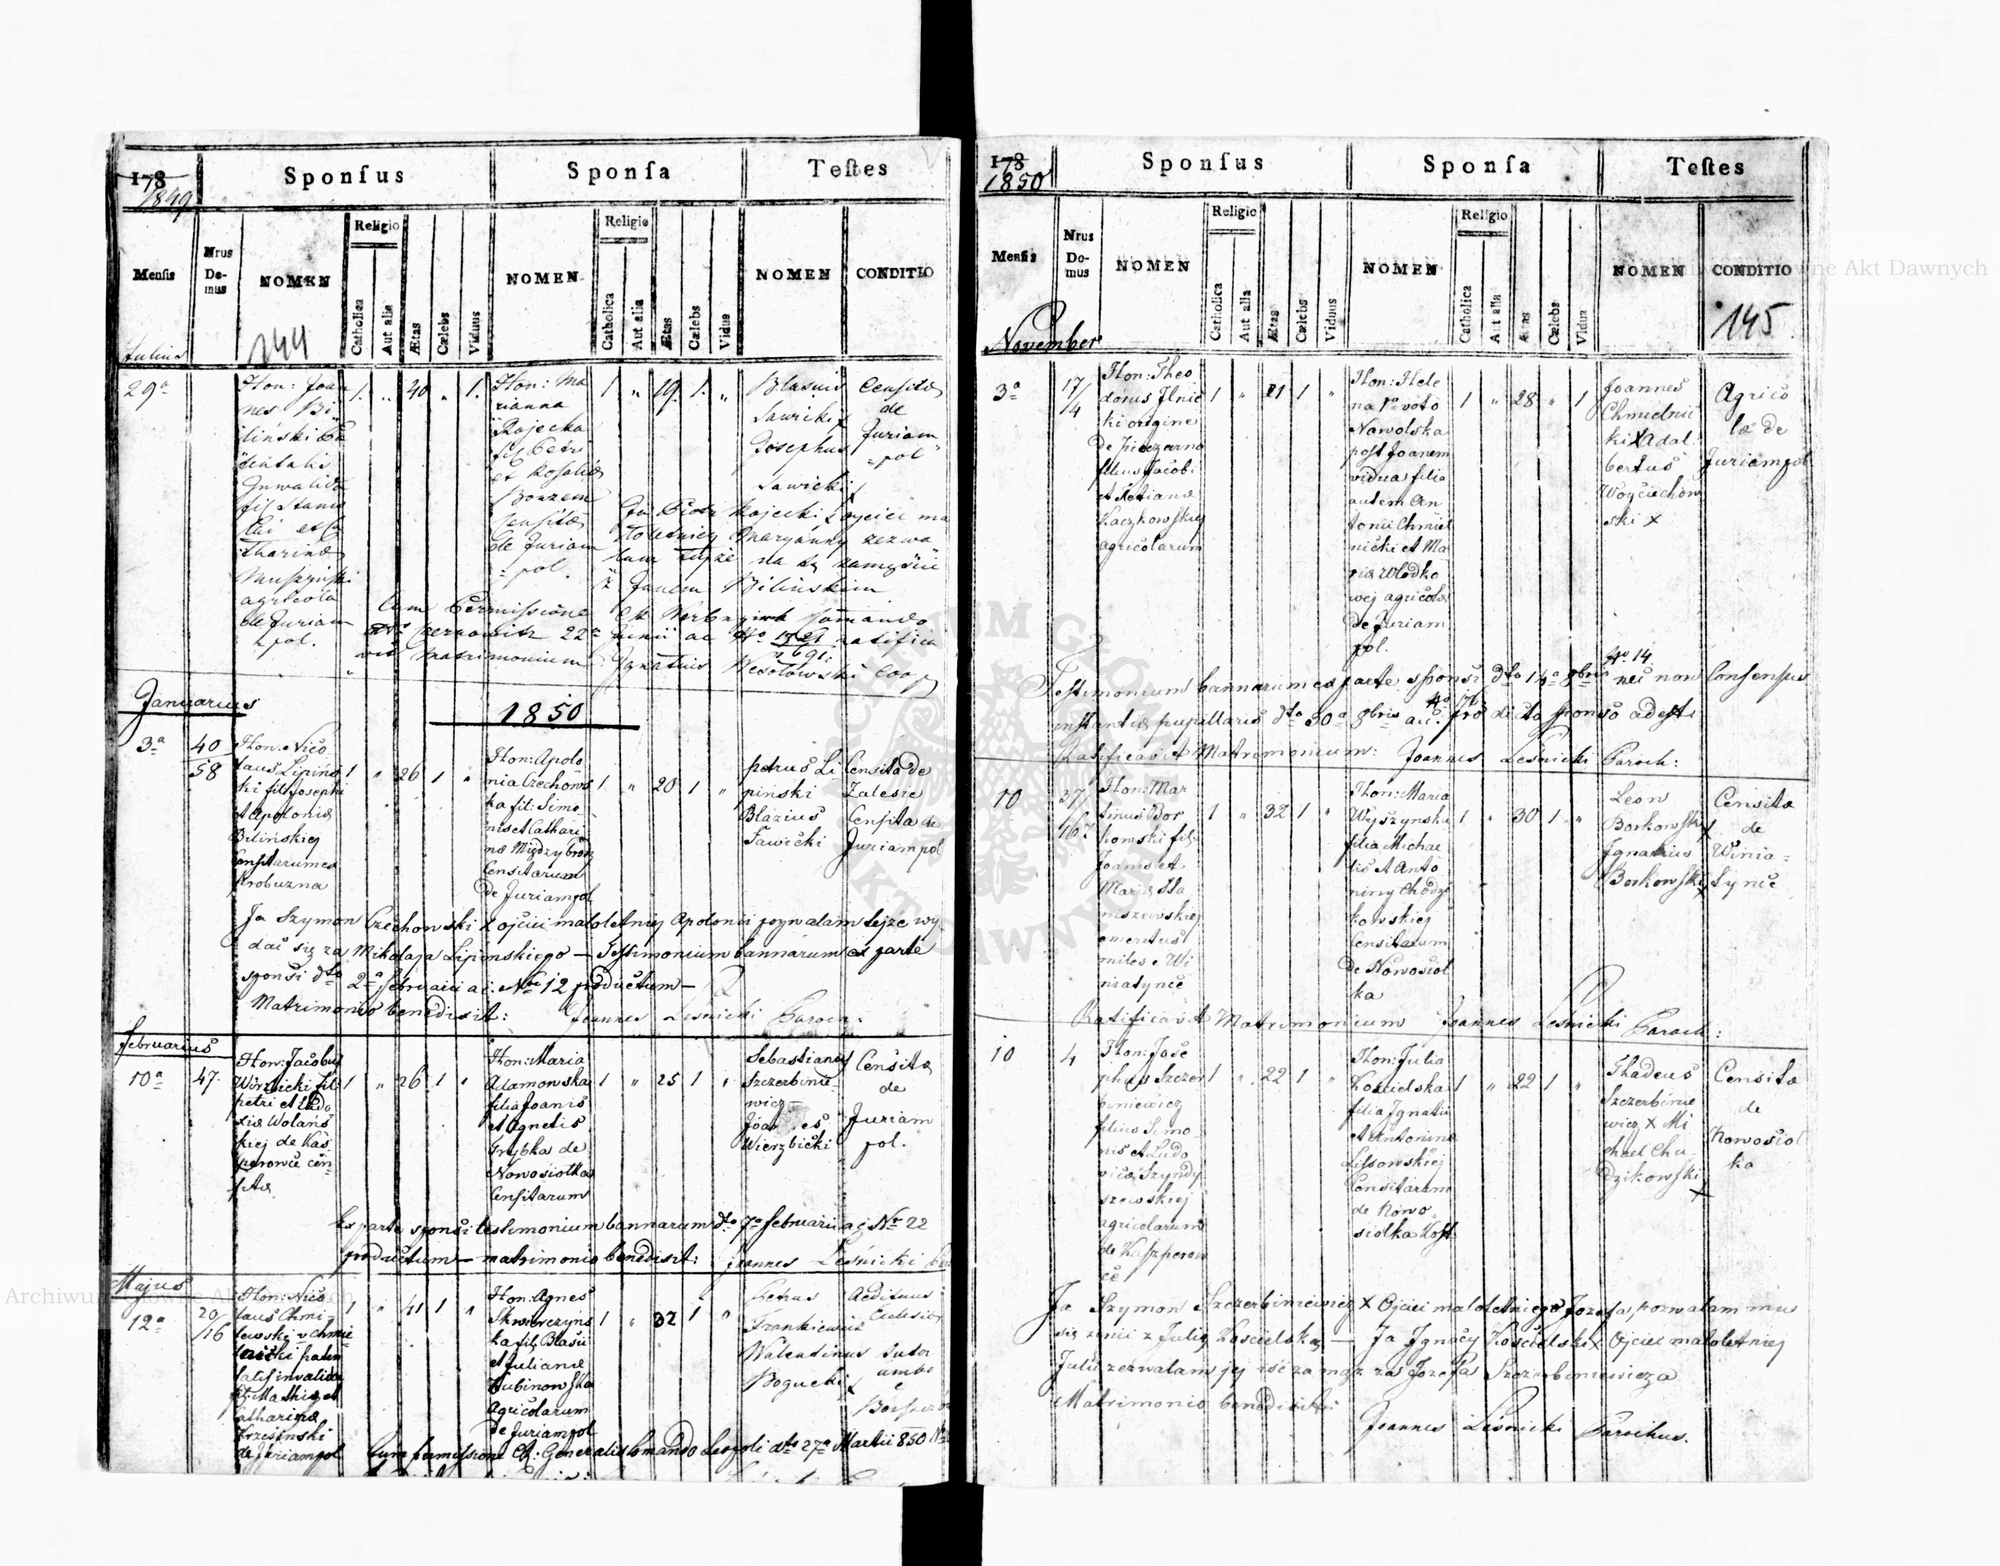 178
1849
Sponſus
Sponſa
Teſtes
Menſis
Nrus
De-
mus
NOMEN
Religio
Catholica
Aut alia
Ætas
Cælebs
Viduus
NOMEN
Religio
Catholica
Aut alia
Ætas
Cælebs
Vidua
NOMEN
CONDITIO
144
Julius
29ª
Hon: Joan
nes Bi
liński
fil Stanis
agricola
de Juriam
pol.
1. " 40 " 1.
Hon: Ma
rianna
Rajecka
fil Petri
et Rosalia
Censitæ
de Juriam
pol.
1 " 19. 1. "
Blasius
Sawicki x
Josephus
Sawicki x
Censitæ
de
Juriam
pol
Ja Piotr Rajecki x ojciec ma
łoletniey Maryanny zezwa
lam tejże na
z Janem Bilińskim
Cum Permissione
Czernowitz 22ª Junii
matrimonium Ignatius Wesołowski Coop
Januarius
1850
3ª
40
58
Hon: Nico
laus Lipińs
ki fil: Josephi
et Apolonia
Bilińskiej
Censitarum ex
Probuzna
1 " 26 1 "
Hon: Apolo
nia Czechows
ka fil: Simo
nis et Cathari
næ Międzybrodz
Censitarum
de Juriampol
1. " 20 1 "
petrus Li
piński
Blazius
Sawicki
Censita de
Zalesie
Censita de
Juriampol
Ja Szymon Czechowski x ojciec małoletniey Apolonii pozwalam tejże wy
dać się za Mikołaja Lipinskiego — Testimonium bannarum ex parte
sponsi dto 2ª februarii a.c. Nro 12 productum —
Matrimonio benedixit: Joannes Leśnicki Paroch:
februarius
10ª
47.
Hon: Jacobus
Wierzbicki fil:
petri et Ludo
Wolańs
kiej de Kas
perowce cen
sitæ
1 " 26 1 "
Hon: Maria
Adamowska
filia Joanis
et Agnetis
Grybka de
Nowosiołka
Censitarum
1 " 25 1 "
Sebastianus
Szczerbinie
wicz —
Wierzbicki
Censitæ
de
Juriam
pol.
Ex parte sponsi testimonium bannarum dto 7ª februarii a.c. Nr 22
productum — matrimonio benedixit: Joannes Leśnicki
Majus
12ª
20
16
Hon: Nico
laus Chmi
lewski v Chmie
nicki paten
talis invalida
fil: Mathiæ et
Catharina
Krzesinski
de Juriampol
1 " 41 1 "
Hon: Agnes
Skworczyńs
ka fil: Blasii
et Juliannæ
Kubinowska
Agricolarum
de Juriampol
1 " 32 1 "
Petrus
Frankiewicz
Walentinus
Bogucki x
Aedituus
Ecclesiæ
Sutor
ambo
Cum permissione Generalis Comando Leopoli dto 27ª Martii 850
178
1850
Sponſus
Sponſa
Teſtes
Menſis
Nrus
Do-
mus
NOMEN
Religio
Catholica
Aut alia
Ætas
Cælebs
Viduus
NOMEN
Religio
Catholica
Aut alia
Ætas
Cælebs
Vidua
NOMEN
CONDITIO
145
November
3ª
17
4
Hon: Theo
dorus Ilnic
ki origine
de Pieczarna
filius Jacobi
et Tetianæ
Kaczkowskiej
agricolarum
1 " 21 1 "
Hon: Hele
na 1º voto
Nawolska
post Joanem
vidua filia
autem An
tonii Chmiel
nicki et Ma
riæ Wlodko
wej agricolæ
de Juriam
pol.
1 " 28 " 1
Joannes
Chmielnic
ki x Adal
bertus
Woyciechow
ski x
Agrico
læ de
Juriampol
No 14
Testimonium bannarum ex parte sponsi dto 14ª 8bris nec non Consensus
instantiæ pupillaris dto 30ª 8bris a.c. pro dicto sponso adest
Ratificavit Matrimonium: Joannes Leśnicki Paroch:
10
27
167
Hon: Mar
tinus Bor
kowski fil:
Joanis et
Mariæ Sta
niszewskiej
emeritus
miles e Wi
niatynce
1 " 32 1 "
Hon: Maria
Wyszynska
filia Michae
lis et Anto
niny Chodzi
kowskiej
Censitarum
de Nowosioł
ka
1 " 30 1 "
Leon
Borkowski x
Ignatius
Borkowski x
Censitæ
de
Winia-
tynce
Ratificavit Matrimonium Joannes Leśnicki Paroch:
10
4
Hon: Jose
phus Szczer
biniewicz
filius Simo
nis et Ludo
vicæ Szyndy
szewskiej
agricolarum
de Kasperow
ce
1 " 22 1 "
Hon: Julia
Koscielska
filia Ignatii
et Antonina
Lissowskiej
Censitarum
de Nowo
siolka Kost:
1 " 22 1 "
Thadeus
Szczerbinie
wicz x Mi
chael Chu
dzikowski
x
Censitæ
de
Nowosioł
ka
Ja Szymon Szczerbiniewicz x Ojciec małoletniego Jozefa pozwalam mu
się żenić z Julią Koscielską — Ja Ignacy Kościelski x Ojciec małoletniej
Julii zezwalam jej iść za mąż za Jozefa Szczerbeniewicza
Matrimonio benedixit
Joannes Leśnicki Parochus.
Archiwum Główne Akt Dawnych